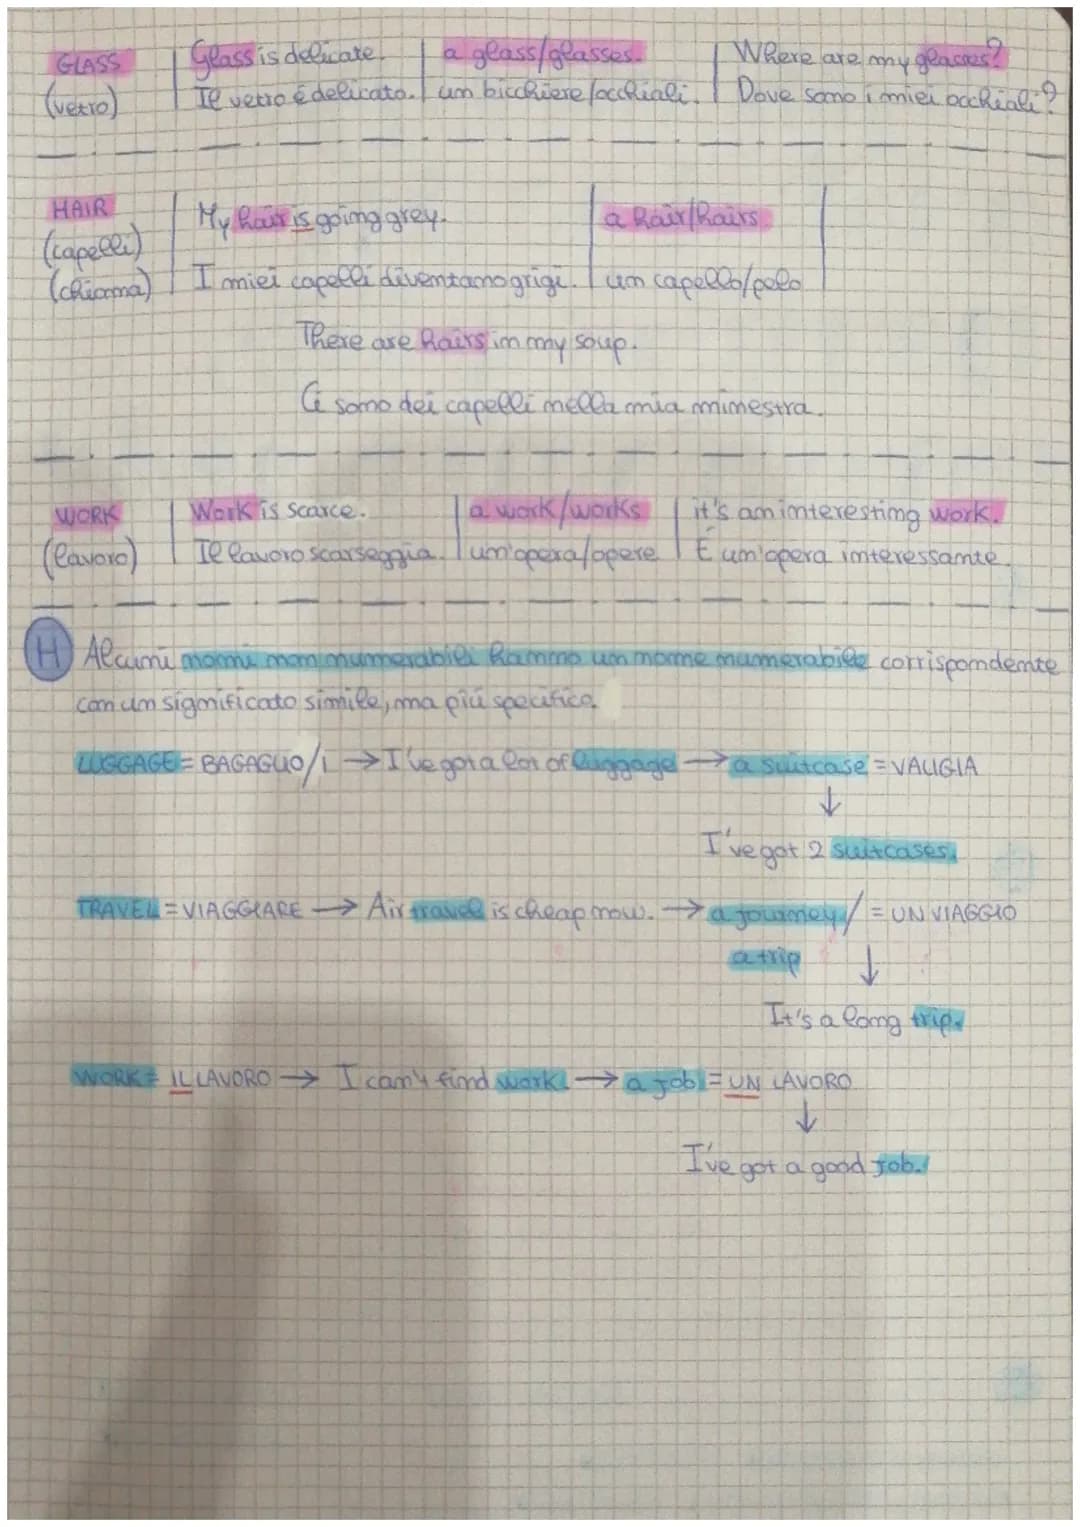 GLASS | Glass is delicate. | a glass/glasses. | Where are my glasses?
(vetro) | Il vetro é delicato. | un bicchiere/occhiali. | Dove sono i miei occhiali?
HAIR | My hair is going grey. | a hair/hairs
(capelli)
(chioma) | I miei capelli diventano grigi. | un capello/pelo
There are hairs in my soup.
Ci sono dei capelli nella mia minestra.
WORK | Work is scarce. | a work/works | it's an interesting work.
(lavoro) | Il lavoro scarseggia. | un'opera/opere | É un'opera interessante.
H Alcuni nomi non numerabili hanno un nome numerabile corrispondente
con un significato simile, ma piú specifico.
LUGGAGE = BAGAGLIO/I → I've got a lot of luggage → a suitcase = VALIGIA
↓
I've got 2 suitcases.
TRAVEL = VIAGGIARE → Air travel is cheap now. → a journey/ = UN VIAGGIO
a trip ↓
It's a long trip.
WORK = IL LAVORO → I can't find work. → a job = UN LAVORO
↓
I've got a good job.